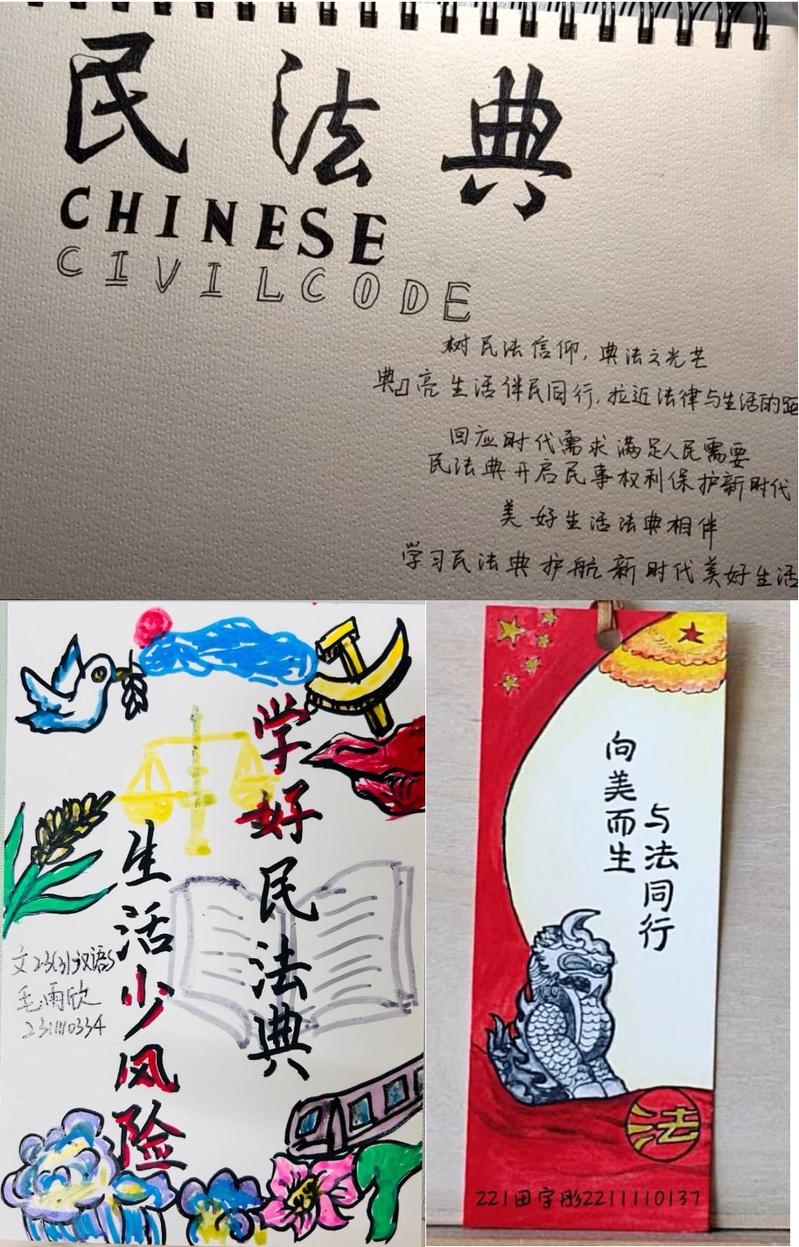 民法典
CHINESE
CIVILCODE
树民法信仰，典法之光芒
典』亮生活伴民同行，拉近法律与生活的距
回应时代需求 满足人民需要
民法典开启民事权利保护新时代
美好生活法典相伴
学习民法典 护航新时代美好生活
学好民法典
生活少风险
文23(3)汉语S
毛雨欣
231110334
与法同行
向美而生
法
221田宇彤2211110137